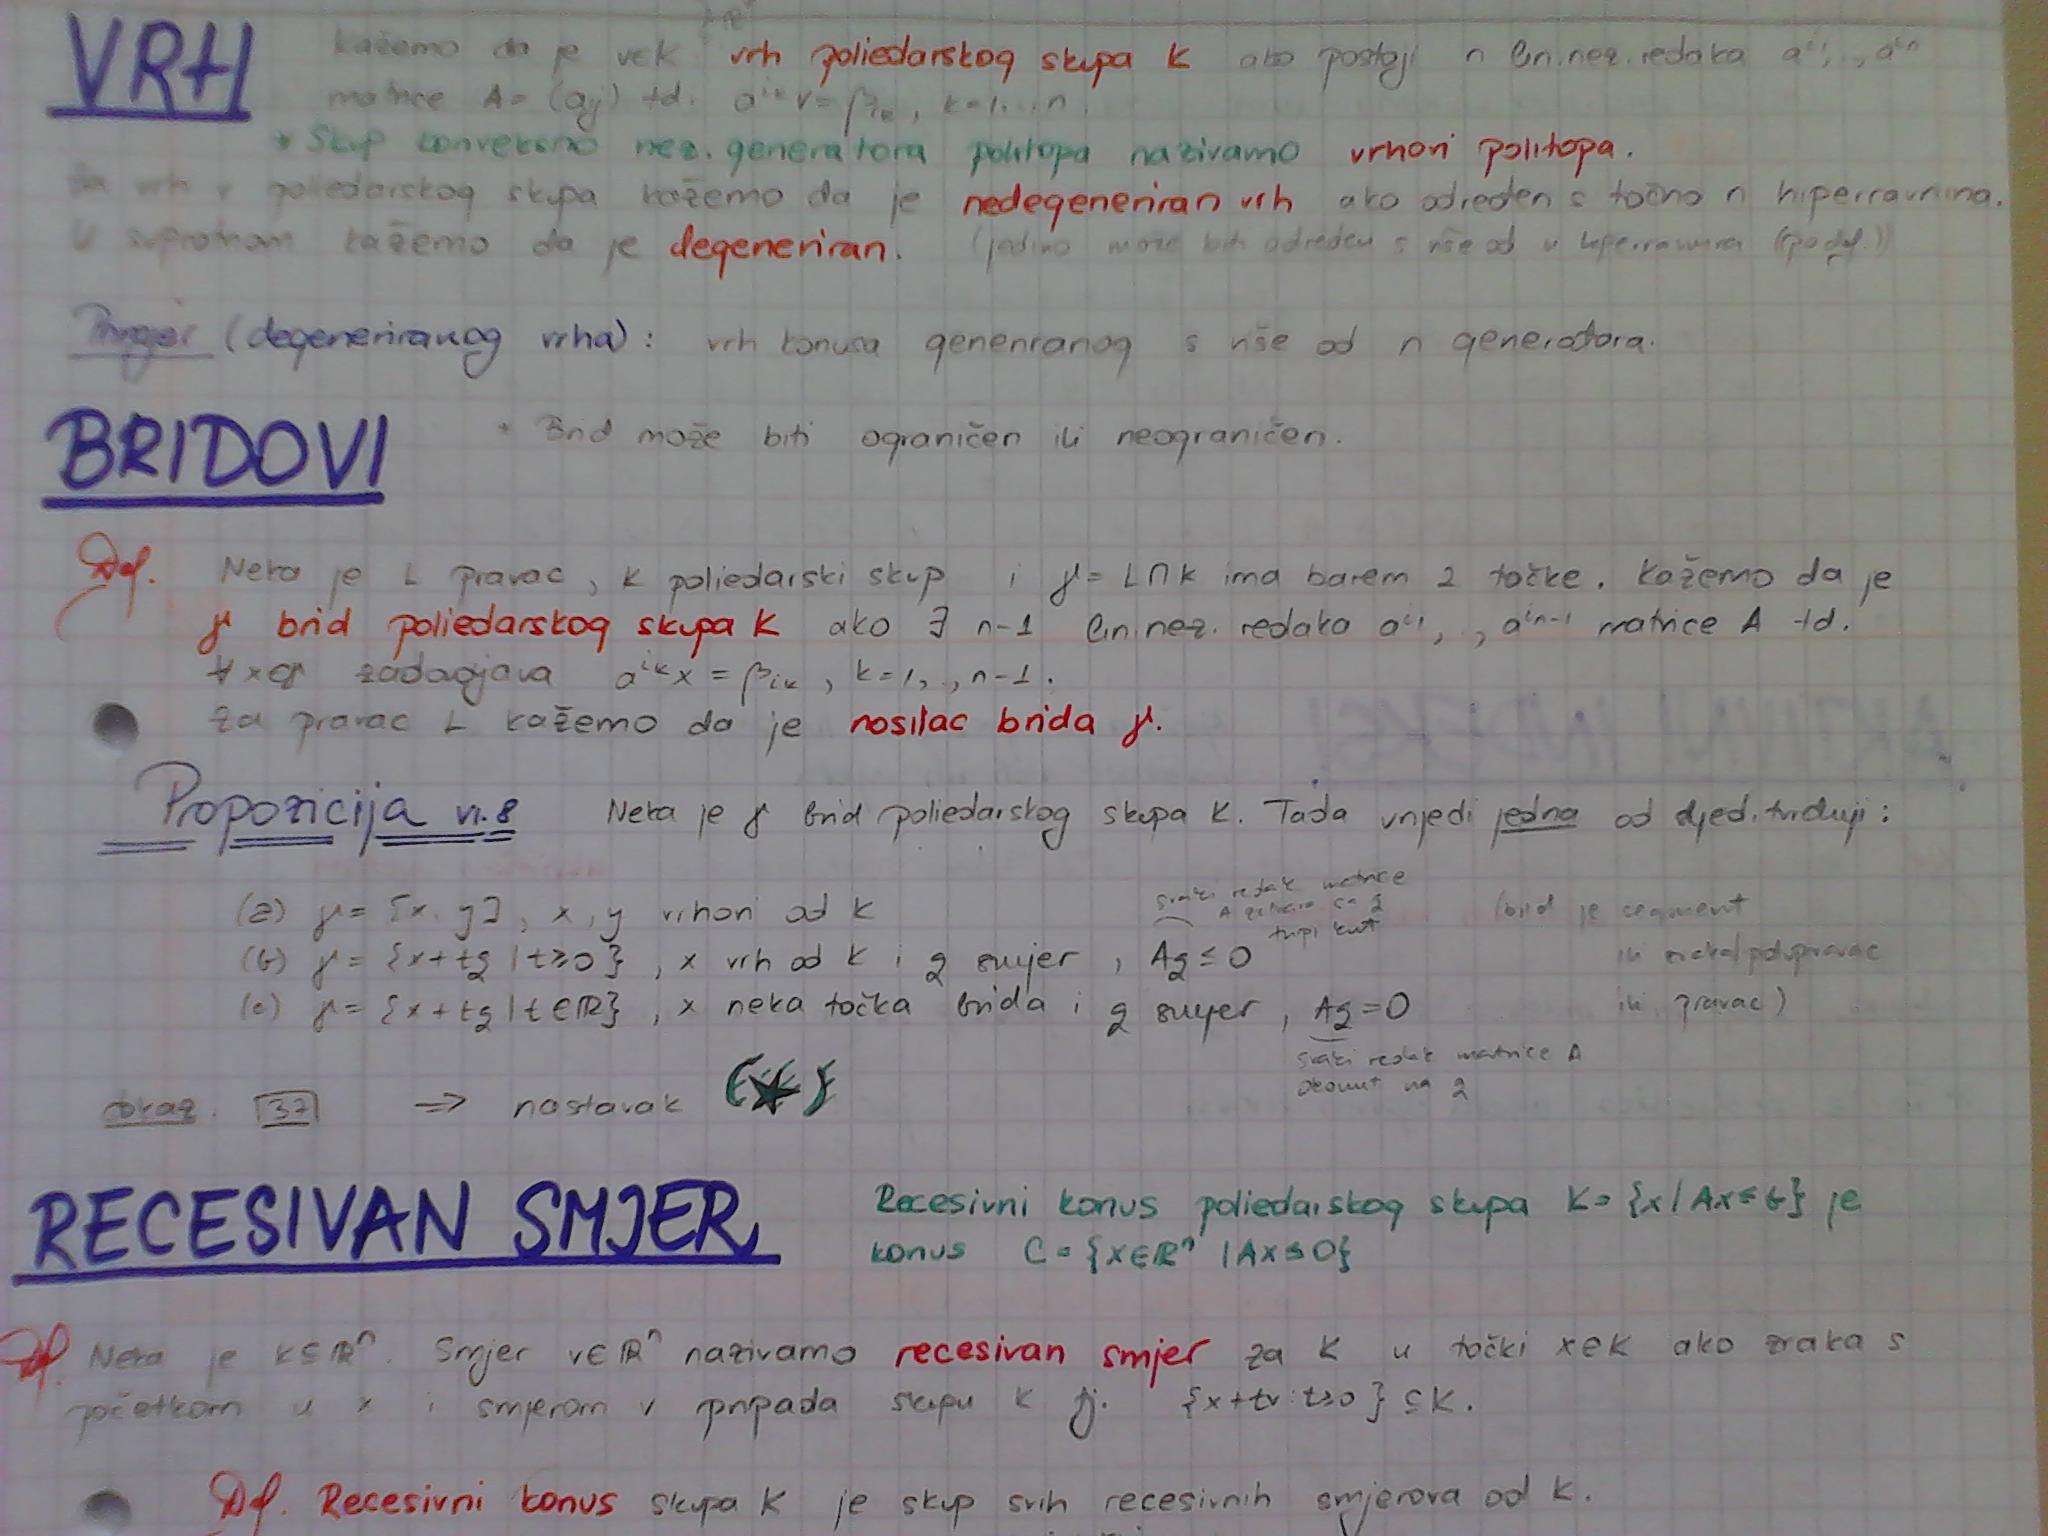 VRH
Kažemo da je v∈K vrh poliedarskog skupa K ako postoji n lin.nez.redaka a^{i_1},..,a^{i_n}
matrice A=(a_{ij}) td. a^{i_k} v = β_{i_k}, k=1,..n.
* Skup konveksno nez. generatora politopa nazivamo vrhovi politopa.
Za vrh v poliedarskog skupa kažemo da je nedegeneriran vrh ako određen s točno n hiperravnina.
U suprotnom kažemo da je degeneriran. (jedino može biti određen s više od n hiperravnina (po def.))
Primjer (degeneriranog vrha): vrh konusa generiranog s više od n generatora.
BRIDOVI
* Brid može biti ograničen ili neograničen.
Def. Neka je L pravac, K poliedarski skup i γ=L∩K ima barem 2 točke. Kažemo da je
γ brid poliedarskog skupa K ako ∃ n-1 lin.nez. redaka a^{i_1},..,a^{i_{n-1}} matrice A td.
∀x∈γ zadovoljava a^{i_k} x = β_{i_k}, k=1,..,n-1.
Za pravac L kažemo da je nosilac brida γ.
Propozicija VI.8 Neka je γ brid poliedarskog skupa K. Tada vrijedi jedna od sljed. tvrdnji:
svaki redak matrice
A zatvara sa g
tupi kut
(a) γ = [x,y], x,y vrhovi od K (brid je segment
(b) γ = {x+tg | t≥0}, x vrh od K i g smjer, Ag ≤ 0 ili zraka/polupravac
(c) γ = {x+tg | t∈ℝ}, x neka točka brida i g smjer, Ag=0 ili pravac)
svaki redak matrice A
okomit na g
dokaz. 37 ⇒ nastavak (★)
RECESIVAN SMJER
Recesivni konus poliedarskog skupa K={x | Ax≤b} je
konus C = {x∈ℝ^n | Ax≤0}
Def. Neka je K⊆ℝ^n. Smjer v∈ℝ^n nazivamo recesivan smjer za K u točki x∈K ako zraka s
početkom u x i smjerom v pripada skupu K tj. {x+tv : t≥0} ⊆ K.
Def. Recesivni konus skupa K je skup svih recesivnih smjerova od K.